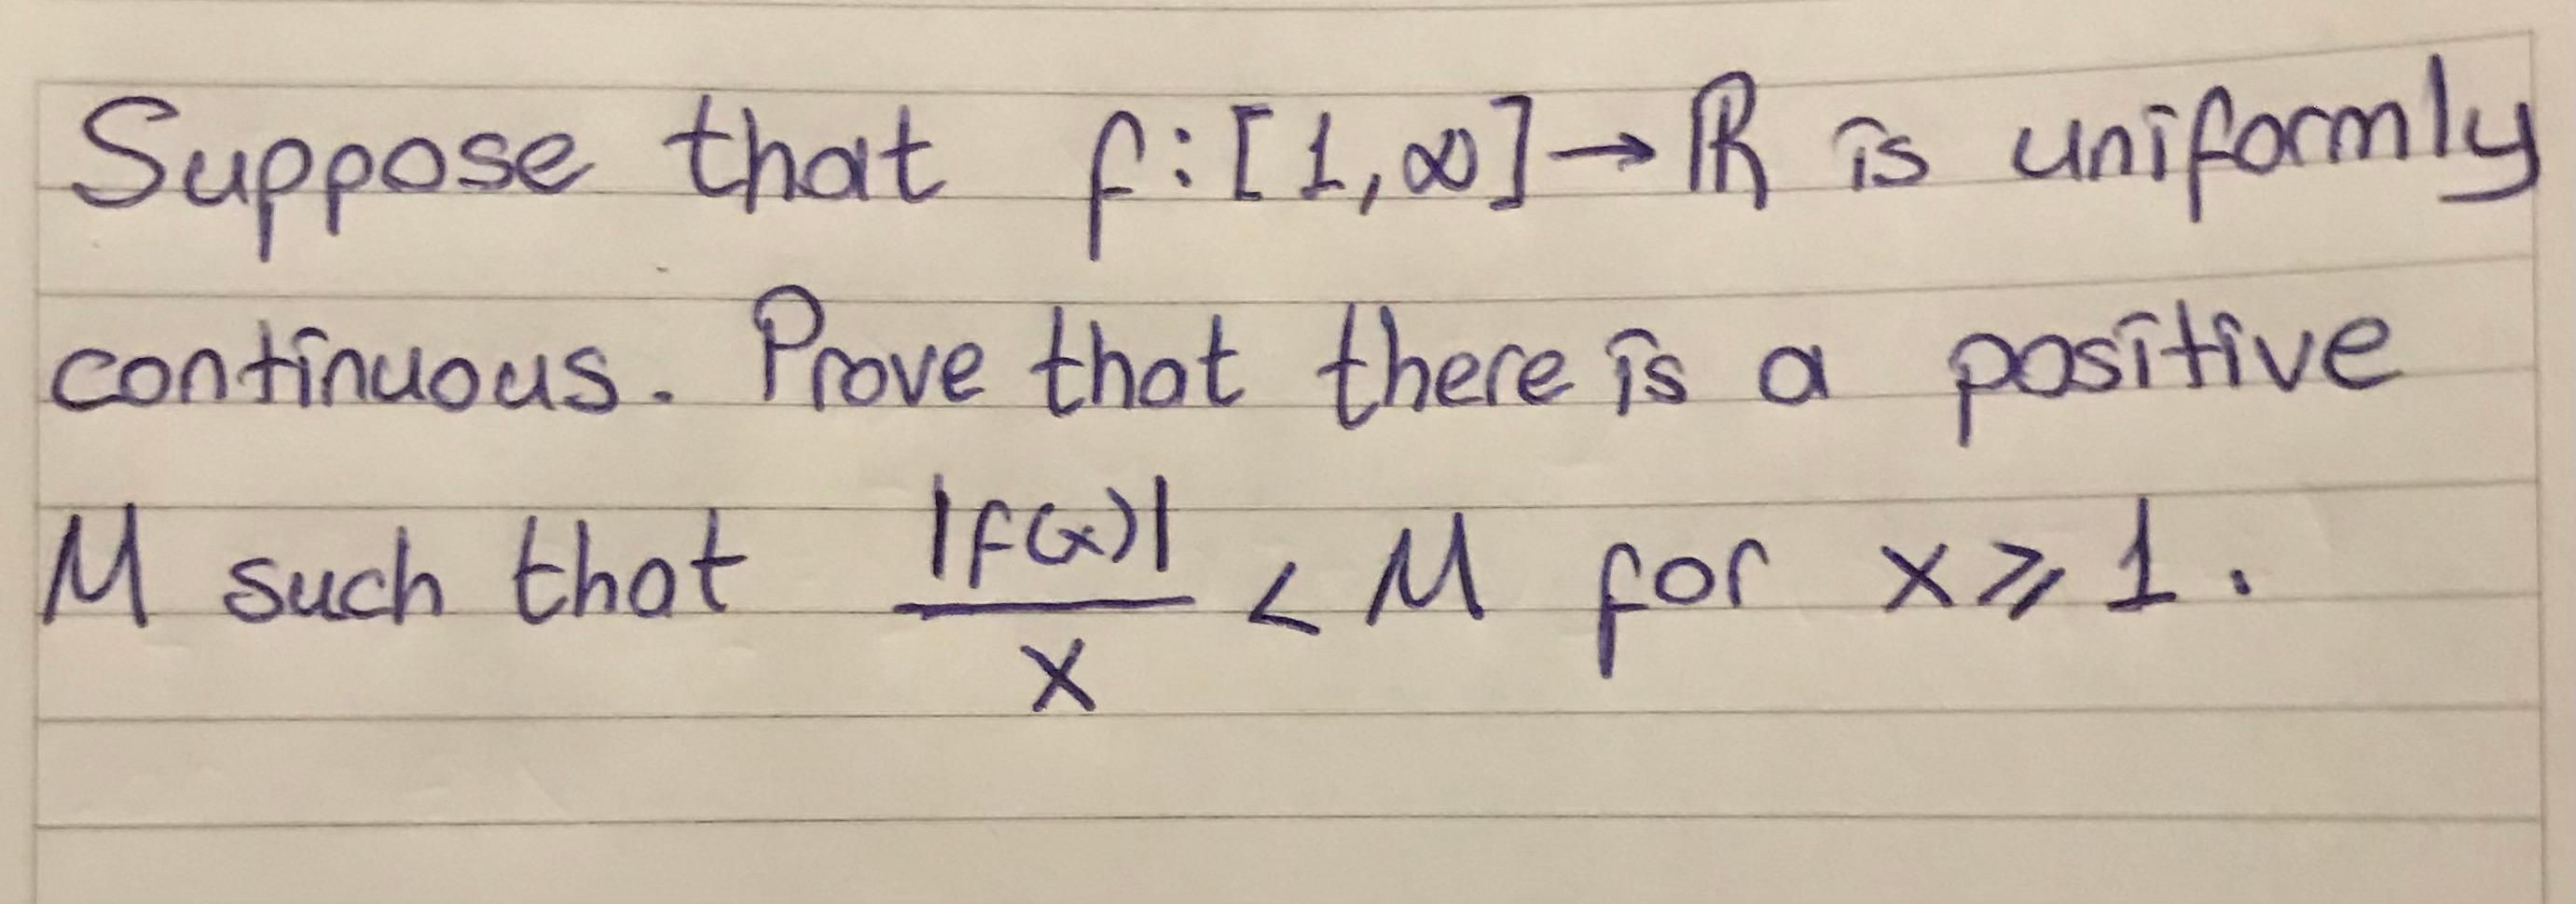 Suppose that f:[1,∞]→ℝ is uniformly
continuous. Prove that there is a positive
M such that |f(x)|/x < M for x ⩾ 1.